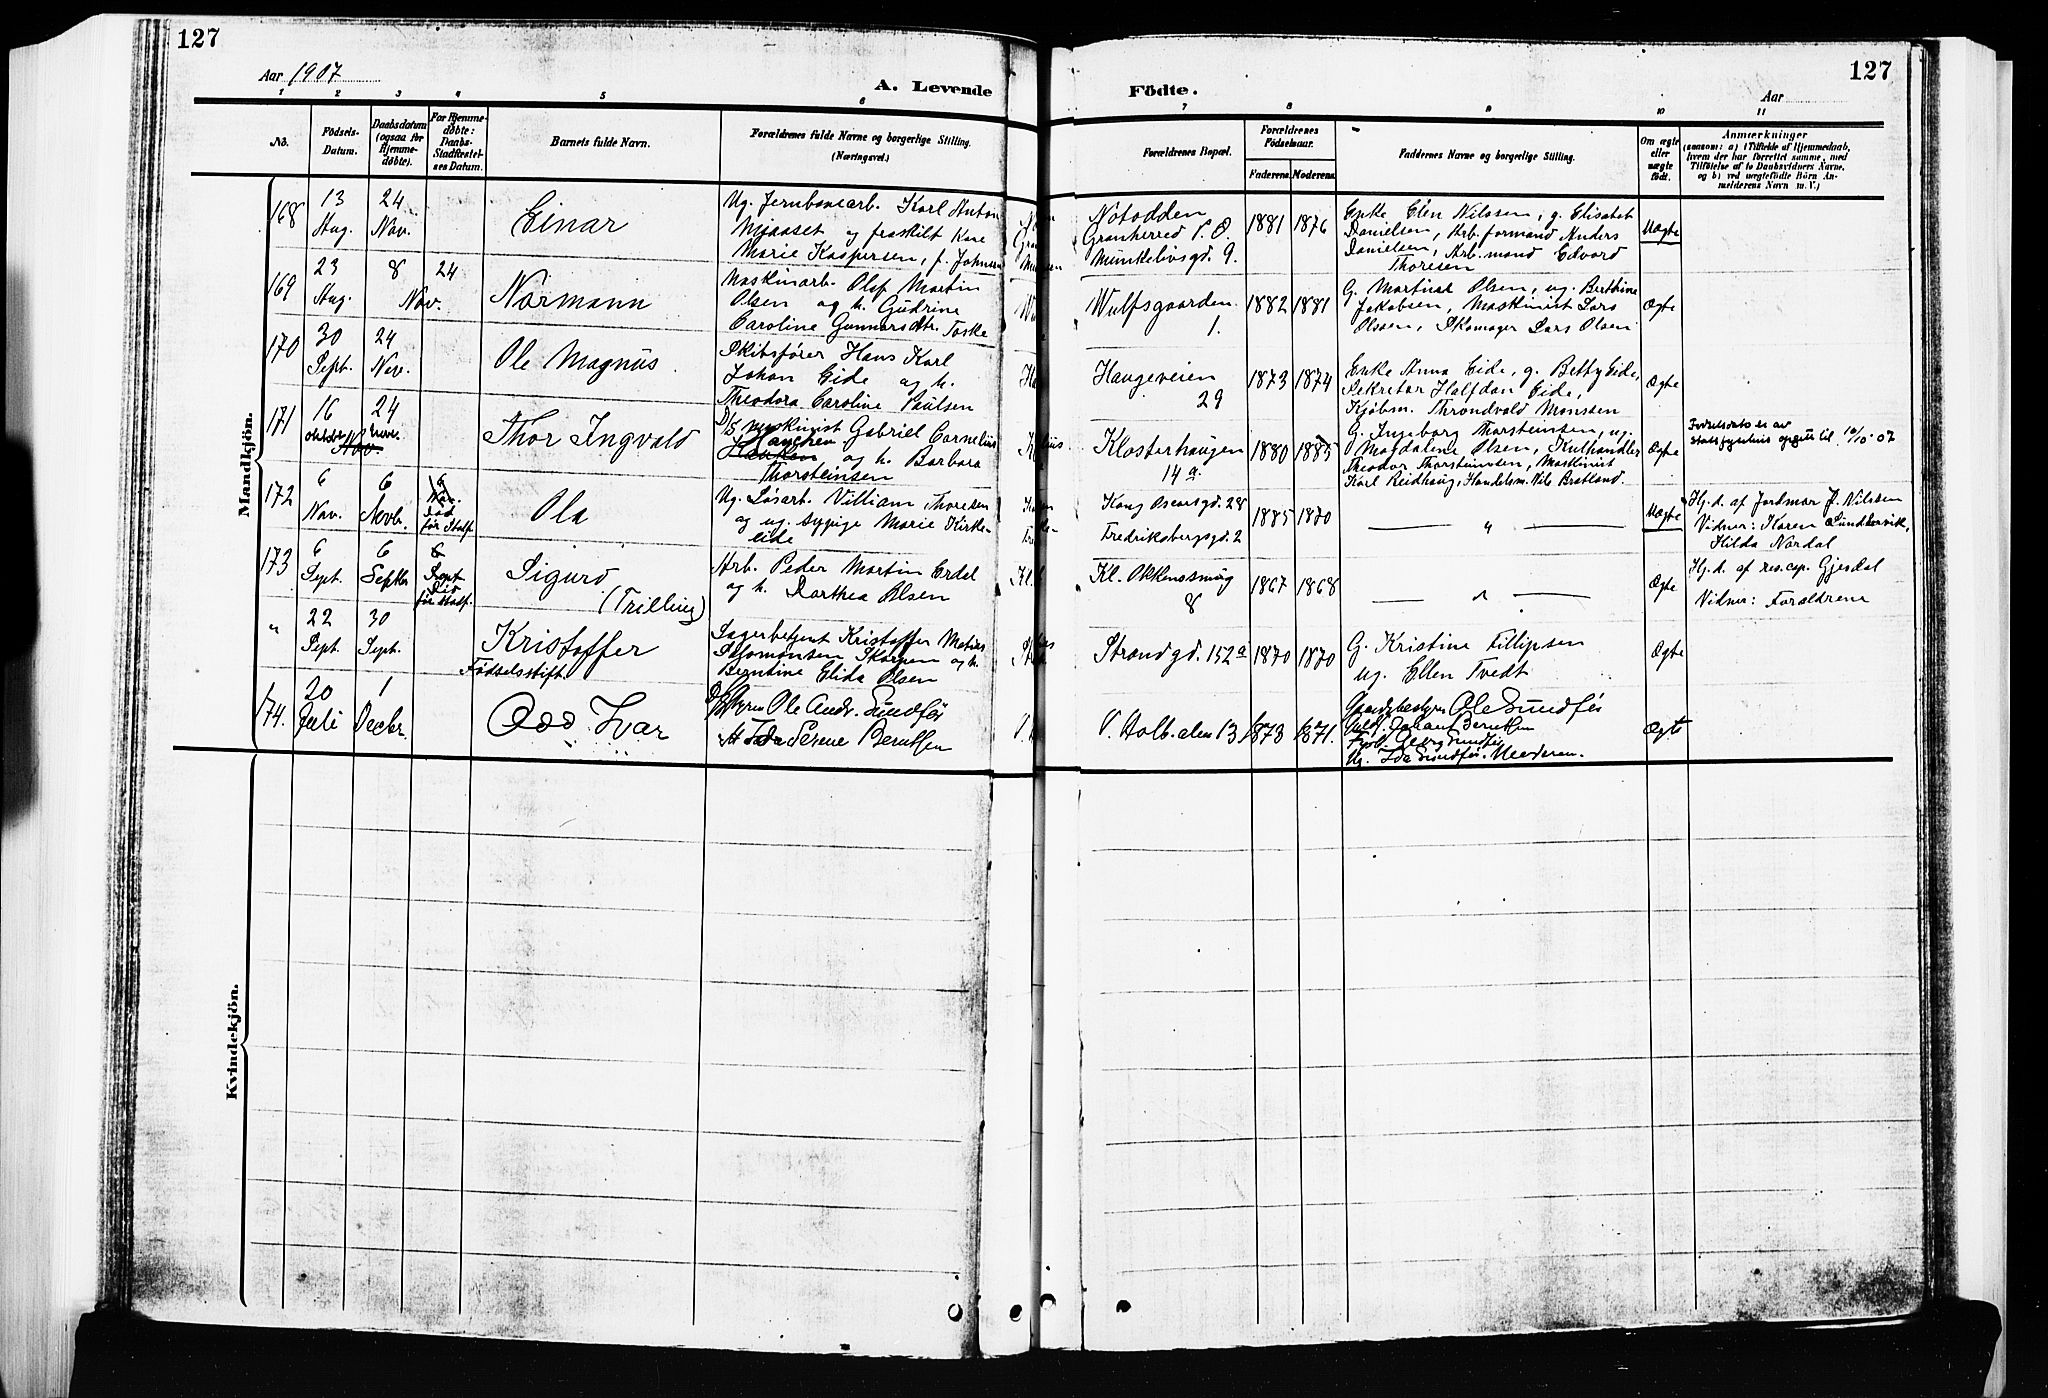 127
127
Aar 1907
A. Levende
Födte.
Aar
1 2 3 4 5 6 7 8 9 10 11
No.
Födsels-
Datum.
Daabsdatum
(ogsaa for
Hjemme-
döbte).
For Hjemme-
döbte:
Daabs-
Stadfæstel-
ses Datum.
Barnets fulde Navn.
Forældrenes fulde Navne og borgerlige Stilling.
(Næringsvei.)
Forældrenes Bopæl.
Forældrenes
Födselsaar.
Faderens. Moderens.
Faddernes Navne og borgerlige Stilling.
Om ægte
eller
uægte
födt.
Anmærkninger
(saasom: a) i Tilfælde af Hjemmedaab,
hvem der har forrettet samme, med
Tilföielse af to Daabsvidners Navne,
og b) ved uægtefödte Börn An-
melderens Navn m. V.)
Mandkjön.
168
13
Aug.
24
Nov.
Einar
Ug. Jernbanearb. Karl Anton
Mjaaset og fraskilt Kone
Marie Kaspersen, f. Johnsen
Notodden
Grankerred P. O.
Munkelivsgd. 9.
1881
1876
Enke Elen Nilssen, g. Elisabet
Danielsen, Arb.formand Anders
Danielsen, Arb.mand Edvard
Thoresen
Uægte
169
23
Aug.
8
Nov.
24
Normann
Maskinarb. Oluf Martin
Olsen og h. Gudrine
Caroline Gunnarsdtr. Toske
Wulfsgaarden
1.
1882
1881
G. Martine Olsen, ug. Berthine
Jakobsen, Maskinist Lars
Olsen, Skomager Lars Olsen
Ægte
170
30
Sept.
24
Nov.
Ole Magnus
Skibsförer Hans Karl
Johan Eide og h.
Theodora Caroline Paulsen
Haugeveien
29
1873
1874
Enke Anna Eide, g. Betty Eide,
Sekretær Halfdan Eide,
Kjöbm. Throndvald Monssen
Ægte
171
16
Oktober
24
Nov.
Thor Ingvald
D/S maskinist Gabriel Cornelius
Hauchen
og h. Barbara
Thorsteinsen
Klosterhaugen
14 a
1880
1885
G. Ingeborg Thorsteinsen, ug.
Magdalene Olsen, Kulhandler
Theodor Thorsteinsen, Maskinist
Karl Reidhaug, Handelsm. Nils Bratland.
Ægte
Fødselsdato er av
statsfysikus opgitt til 16/10 07
172
6
Nov.
6
Novbr.
6
Nov.
Död
för Stadf.
Ola
Ug. Løsarb. Villiam Thoresen
og ug. sypige Marie Kirke-
eide
Kong Oscarsgd. 28
Fredriksbergsgd. 2
1885
1870
"
Uægte
Hj. d. af Jordmor J. Nilssen
Vidner: Karen Sundtsvik,
Hilda Nordal
173
6
Sept.
6
Septbr
6
Sept
Död
för Stadf.
Sigurd
(Trilling)
Arb. Peder Martin Erdal
og h. Dorthea Olsen
Kl. Økkensmug
8
1867
1868
"
Ægte
Hj. d. af res. cap. Gjesdal
Vidner: Forældrene
"
22
Sept.
30
Sept.
Kristoffer
Födselsstift.
Lagerbetjent Kristoffer Matias
Salomonsen Skorpen og h.
Berntine Elida Olsen
Strandgd. 152 a
1870
1870
G. Kristine Fillipsen
ug. Ellen Tvedt
Ægte
174.
20
Juli
1
Decbr.
Odd Ivar
Ole Andr. Sundför
Serene Berntsen
V. Holb. alm 13
1873
1871.
Ole Sundför
Johan Berntsen
Georg Sundför
Ug. Ida Sundför. Moderen.
Ægte
Kvindekjön.